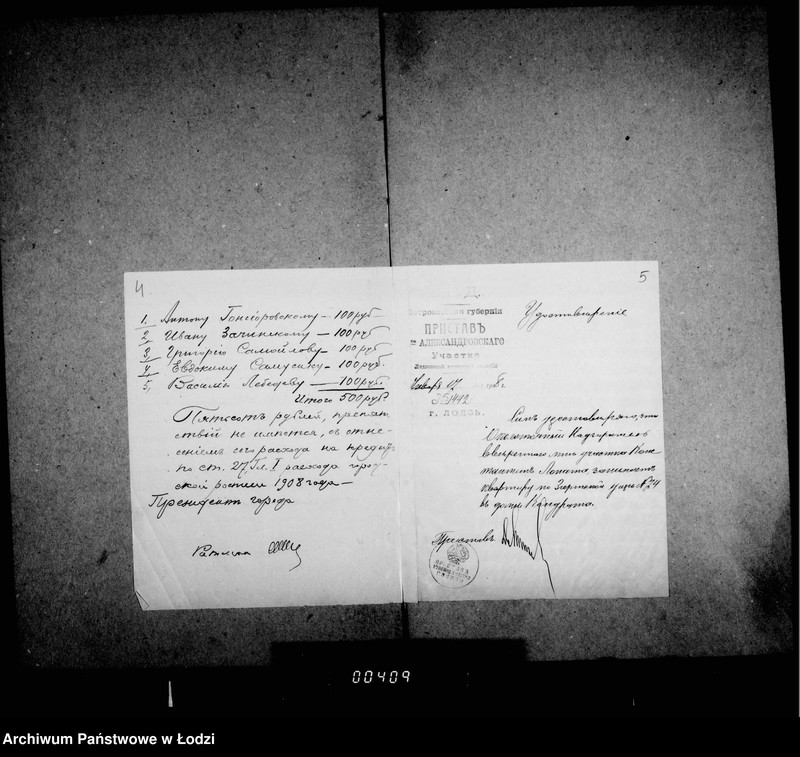 4.
1. Антону Гонсіоровскому — 100 руб
2, Ивану Зачинскому — 100 руб
3, Григорію Самойлову — 100 руб.
4, Евдокиму Самусику — 100 руб.
5, Василію Лебедеву — 100 руб.
Итого 500 руб.
Пятьсотъ рублей, препят
ствій не имѣется, съ отне
сеніемъ сего расхода на кредитъ
по ст. 27 Гл. I расхода
росписи 1908 года —
Президентъ города
5
губерніи
ПРИСТАВЪ
АЛЕКСАНДРОВСКАГО
Участка
Января 17 8 г.
№ 1442
г. ЛОДЗЬ.
Удостовѣреніе
Симъ удостовѣряю, что
участка
занимаетъ
квартиру по Згержской улицѣ № 24
въ домѣ Кондрата.
Приставъ
00409
Archiwum Państwowe w Łodzi